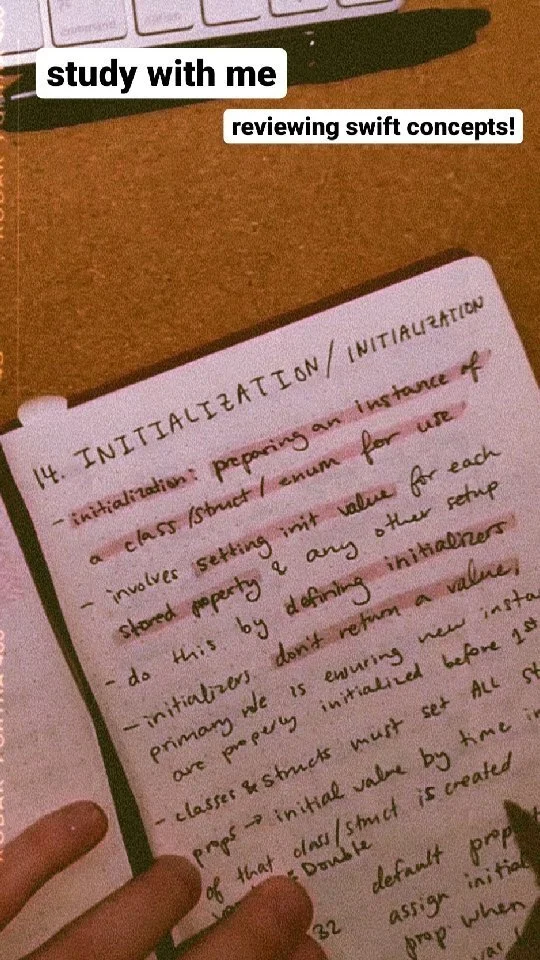 command
study with me
reviewing swift concepts!
14. INITIALIZATION/INITIALIZATION
- initialization: preparing an instance of
a class/struct/enum for use
- involves setting init value for each
stored poperty & any other setup
- do this by defining initializers
- initializers don't return a value,
primary role is ensuring new
are properly initialized before 1st
- classes & structs must set ALL
props → initial value by time
of that class/struct is created
Double
32 default
assign
prop when
KODAK PORTRA 400